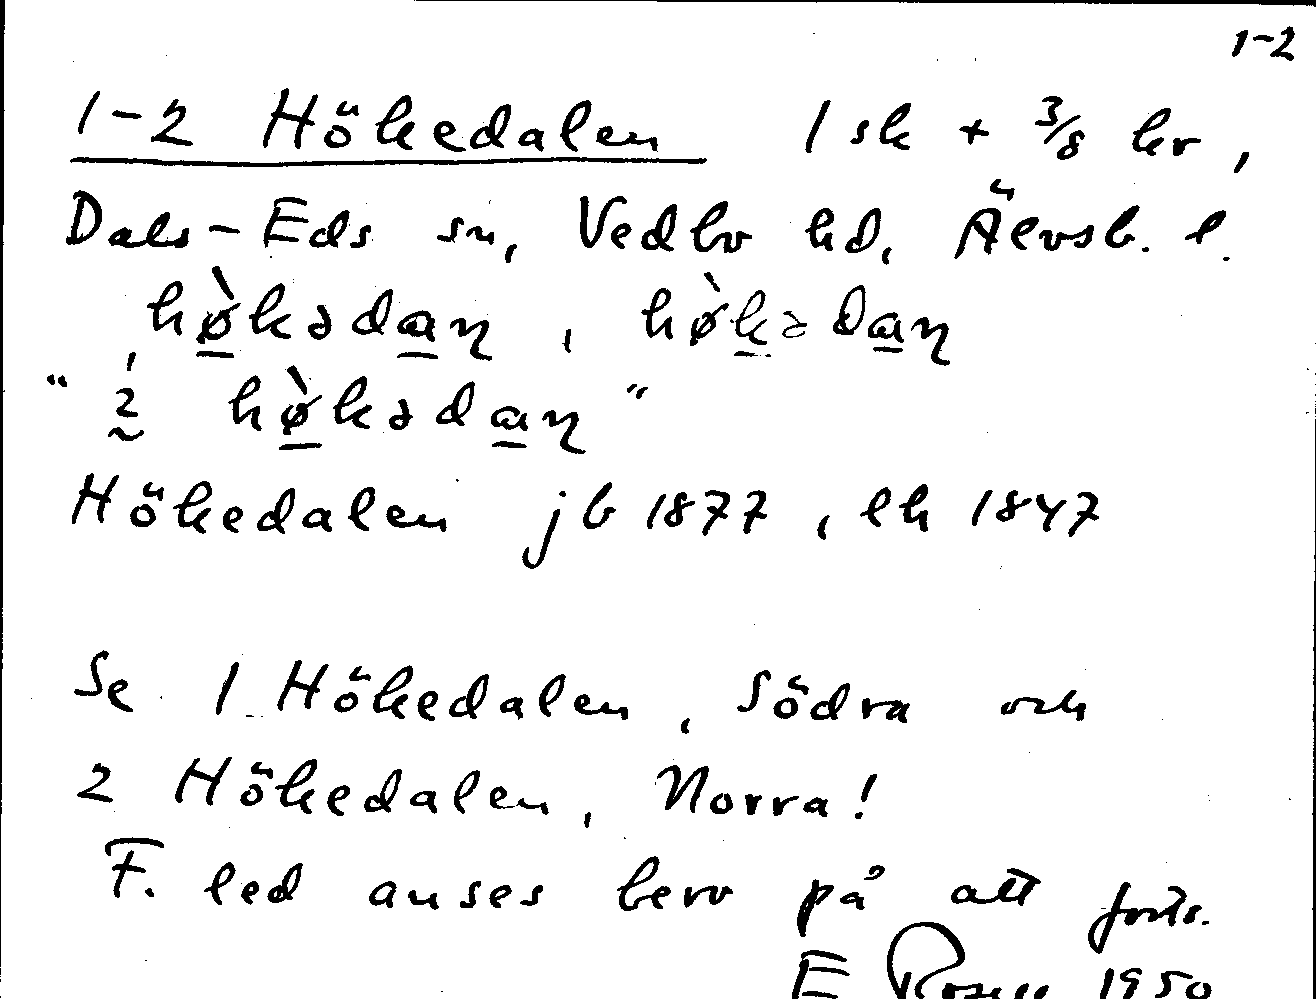 1-2
1-2 Hökedalen 1 sk + 3/8 kr,
Dals-Eds sn, Vedbo hd, Älvsb. l.
hø̀kədaṉ, hø̀kədaṉ
" hø̀kədaṉ "
Hökedalen jb 1877, ek 1847
Se 1 Hökedalen, Södra och
2 Hökedalen, Norra!
F. led anses bero på att forts.
E Rosell 1950